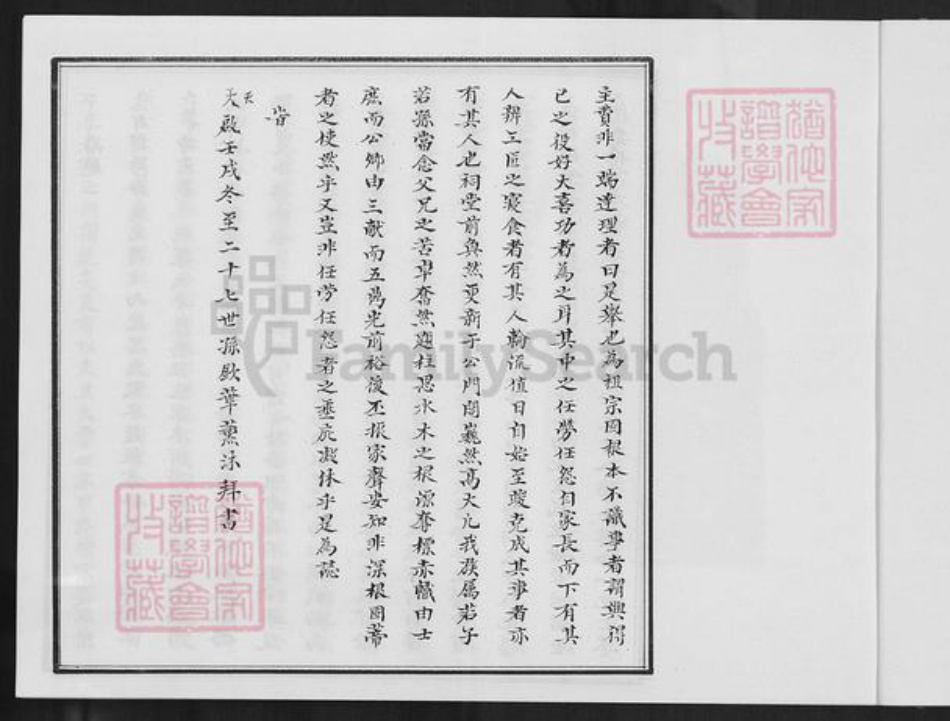 主費非一端達理者曰是舉也為祖宗固根本不識事者謂興得
已之役好大喜功者為之耳其中之任勞任怨自家長而下有其
人辨工匠之寢食者有其人輪流值日自始至竣克成其事者亦
有其人也祠堂前奐然更新于公門閭巍然高大凡我族屬若子
若孫當念父兄之苦辛奮然題柱思水木之根源奪標赤幟由士
庶而公卿由三献而五為光前裕後丕振家聲安知非深根固蒂
者之使然乎又豈非任勞任怨者之垂庇凝休乎是為誌
皆
天
大啟壬戌冬至二十七世孫 華薰沐拜書
猶他家
譜學會
收藏
猶他家
譜學會
收藏
FamilySearch